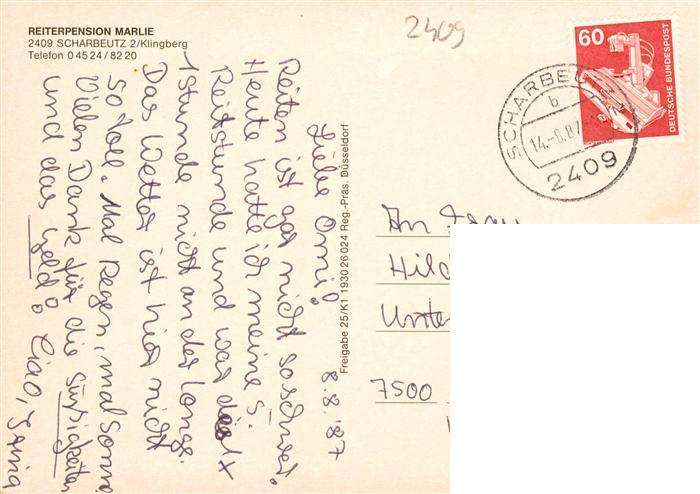 REITERPENSION MARLIE
2409 SCHARBEUTZ 2/Klingberg
Telefon 0 45 24 / 82 20
2409
60
DEUTSCHE BUNDESPOST
SCHARBEUTZ
b
14.-8.87
2409
8.8.'87
Liebe Omi!
Reiten ist gar nicht so schwer.
Heute hatte ich meine 5.
Reitstunde und war 1x
1 Stunde nicht an der Longe.
Das Wetter ist hier nicht
so toll. Mal Regen, mal Sonne
Vielen Dank für die Süßigkeiten
und das Geld! Ciao,
Freigabe 25/K1 1930 26 024 Reg.-Präs. Düsseldorf
An Frau
Hild
Unte
7500